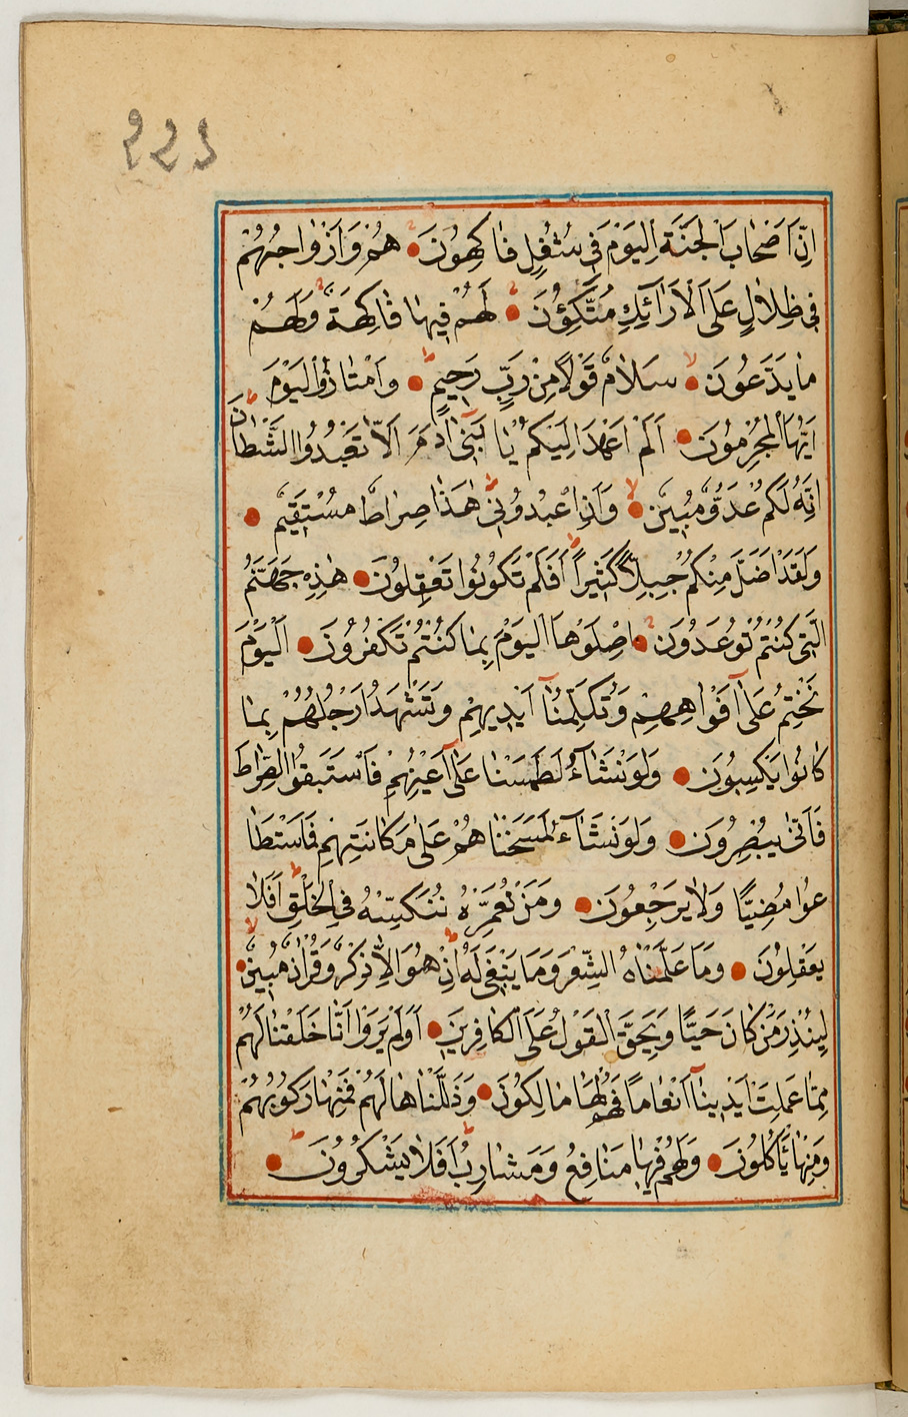 اِنَّ اَصْحَابَ الْجَنَّةِ الْيَوْمَ فِى شُغُلٍ فَاكِهُونَ هُمْ وَاَزْوَاجُهُمْ
فِى ظِلَالٍ عَلَى الْاَرَائِكِ مُتَّكِؤُنَ لَهُمْ فِيهَا فَاكِهَةٌ وَلَهُمْ
مَا يَدَّعُونَ سَلَامٌ قَوْلًا مِنْ رَبٍّ رَحِيمٍ وَامْتَازُوا الْيَوْمَ
اَيُّهَا الْمُجْرِمُونَ اَلَمْ اَعْهَدْ اِلَيْكُمْ يَا بَنِى اٰدَمَ اَلَّا تَعْبُدُوا الشَّيْطَانَ
اِنَّهُ لَكُمْ عَدُوٌّ مُبِينٌ وَاَنِ اعْبُدُونِى هٰذَا صِرَاطٌ مُسْتَقِيمٌ
وَلَقَدْ اَضَلَّ مِنْكُمْ جِبِلًّا كَثِيرًا اَفَلَمْ تَكُونُوا تَعْقِلُونَ هٰذِهِ جَهَنَّمُ
الَّتِى كُنْتُمْ تُوعَدُونَ اِصْلَوْهَا الْيَوْمَ بِمَا كُنْتُمْ تَكْفُرُونَ اَلْيَوْمَ
نَخْتِمُ عَلٰى اَفْوَاهِهِمْ وَتُكَلِّمُنَا اَيْدِيهِمْ وَتَشْهَدُ اَرْجُلُهُمْ بِمَا
كَانُوا يَكْسِبُونَ وَلَوْ نَشَاءُ لَطَمَسْنَا عَلٰى اَعْيُنِهِمْ فَاسْتَبَقُوا الصِّرَاطَ
فَاَنّٰى يُبْصِرُونَ وَلَوْ نَشَاءُ لَمَسَخْنَا هُمْ عَلٰى مَكَانَتِهِمْ فَاسْتَطَا
عُوا مُضِيًّا وَلَا يَرْجِعُونَ وَمَنْ نُعَمِّرْهُ نُنَكِّسْهُ فِى الْخَلْقِ اَفَلَا
يَعْقِلُونَ وَمَا عَلَّمْنَاهُ الشِّعْرَ وَمَا يَنْبَغِى لَهُ اِنْ هُوَ اِلَّا ذِكْرٌ وَقُرْاٰنٌ مُبِينٌ
لِيُنْذِرَ مَنْ كَانَ حَيًّا وَيَحِقَّ الْقَوْلُ عَلَى الْكَافِرِينَ اَوَلَمْ يَرَوْا اَنَّا خَلَقْنَا لَهُمْ
مِمَّا عَمِلَتْ اَيْدِينَا اَنْعَامًا فَهُمْ لَهَا مَالِكُونَ وَذَلَّلْنَاهَا لَهُمْ فَمِنْهَا رَكُوبُهُمْ
وَمِنْهَا يَأْكُلُونَ وَلَهُمْ فِيهَا مَنَافِعُ وَمَشَارِبُ اَفَلَا يَشْكُرُونَ